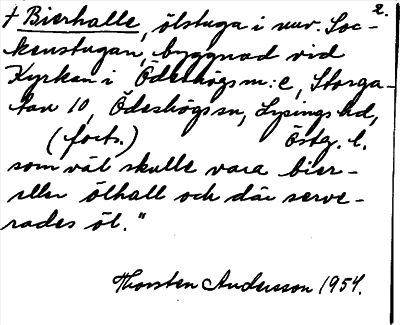 2.
† Bierhalle, ölstuga i nuv. Soc-
kenstugan, byggnad vid
Kyrkan i Ödeshögs m:e, Storga-
tan 10, Ödeshögs sn, Lysings hd,
(forts.) Östg. l.
som väl skulle vara bier-
eller ölhall och där serve-
rades öl."
Thorsten Andersson 1954.